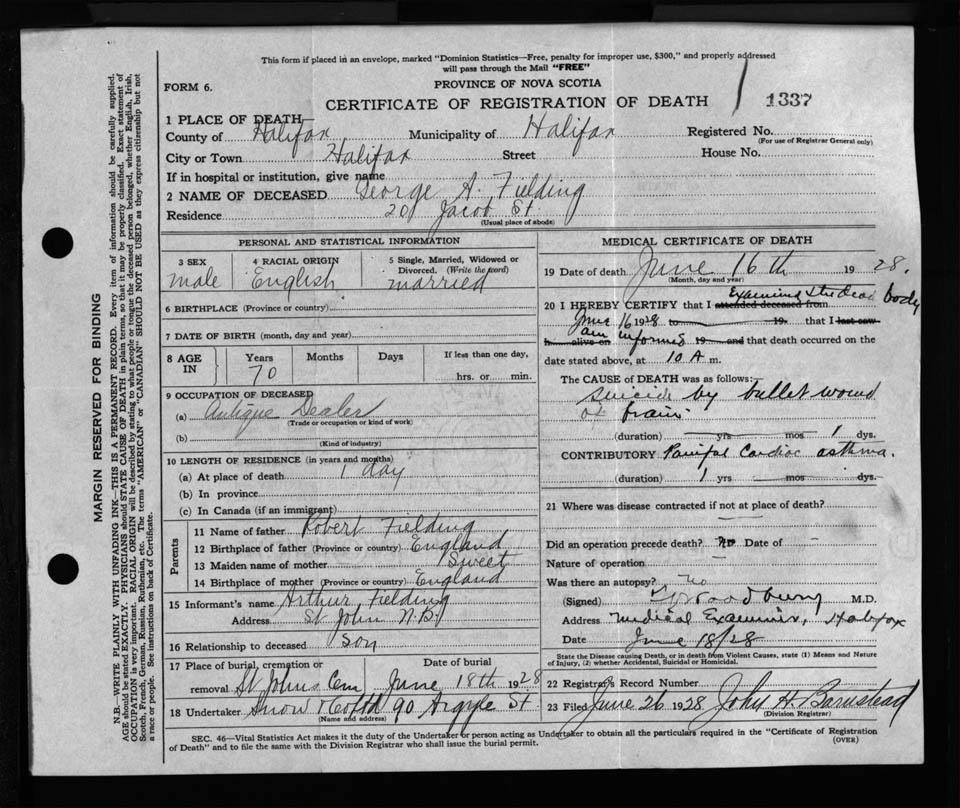 This form if placed in an envelope, marked "Dominion Statistics—Free, penalty for improper use, $300," and properly addressed
will pass through the Mail "FREE"
FORM 6.
PROVINCE OF NOVA SCOTIA
CERTIFICATE OF REGISTRATION OF DEATH
1337
1 PLACE OF DEATH—
County of Halifax Municipality of Halifax Registered No.
(For use of Registrar General only)
City or Town Halifax Street House No.
If in hospital or institution, give name
2 NAME OF DECEASED George A. Fielding
Residence 20 Jacob St
(Usual place of abode)
PERSONAL AND STATISTICAL INFORMATION
3 SEX 4 RACIAL ORIGIN 5 Single, Married, Widowed or
Divorced. (Write the word)
male English married
6 BIRTHPLACE (Province or country)
7 DATE OF BIRTH (month, day and year)
8 AGE IN Years Months Days If less than one day,
70 hrs. or min.
9 OCCUPATION OF DECEASED
(a) Antique Dealer
(Trade or occupation or kind of work)
(b)
(Kind of industry)
10 LENGTH OF RESIDENCE (in years and months)
(a) At place of death 1 day
(b) In province
(c) In Canada (if an immigrant)
Parents
11 Name of father Robert Fielding
12 Birthplace of father (Province or country) England
13 Maiden name of mother Sweet
14 Birthplace of mother (Province or country) England
15 Informant's name Arthur Fielding
Address St John N.B.
16 Relationship to deceased son
17 Place of burial, cremation or Date of burial
removal St Johns Cem June 18th 1928
18 Undertaker Snow 90 Argyle St
(Name and address)
MEDICAL CERTIFICATE OF DEATH
19 Date of death June 16th 1928.
(Month, day and year)
Examined the dead body
20 I HEREBY CERTIFY that I attended deceased from
June 16 1928 to 19 that I last saw
h alive on am informed 19 and that death occurred on the
date stated above, at 10 A m.
The CAUSE of DEATH was as follows:—
Suicide by bullet wound
of brain
(duration) yrs mos 1 dys.
CONTRIBUTORY Painful Cardiac asthma.
(duration) 1 yrs mos dys.
21 Where was disease contracted if not at place of death?
Did an operation precede death? no Date of -
Nature of operation
Was there an autopsy? no
(Signed) Woodbury M.D.
Address Medical Examiner, Halifax
Date June 18/28
State the Disease causing Death, or in death from Violent Causes, state (1) Means and Nature
of Injury, (2) whether Accidental, Suicidal or Homicidal.
22 Registrar's Record Number
23 Filed June 26 1928 John H. Barnstead
(Division Registrar)
SEC. 46—Vital Statistics Act makes it the duty of the Undertaker or person acting as Undertaker to obtain all the particulars required in the "Certificate of Registration
of Death" and to file the same with the Division Registrar who shall issue the burial permit. (OVER)
MARGIN RESERVED FOR BINDING
N.B.—WRITE PLAINLY WITH UNFADING INK—THIS IS A PERMANENT RECORD. Every item of information should be carefully supplied.
AGE should be stated EXACTLY. PHYSICIANS should STATE CAUSE OF DEATH in plain terms, so that it may be properly classified. Exact statement of
OCCUPATION is very important. RACIAL ORIGIN will be described by stating to what people or tongue the deceased person belonged, whether English, Irish,
Scotch, French, German, Russian, Ruthenian, etc. The terms "AMERICAN" or "CANADIAN" SHOULD NOT BE USED as they express citizenship but not
a race or people. See instructions on back of Certificate.